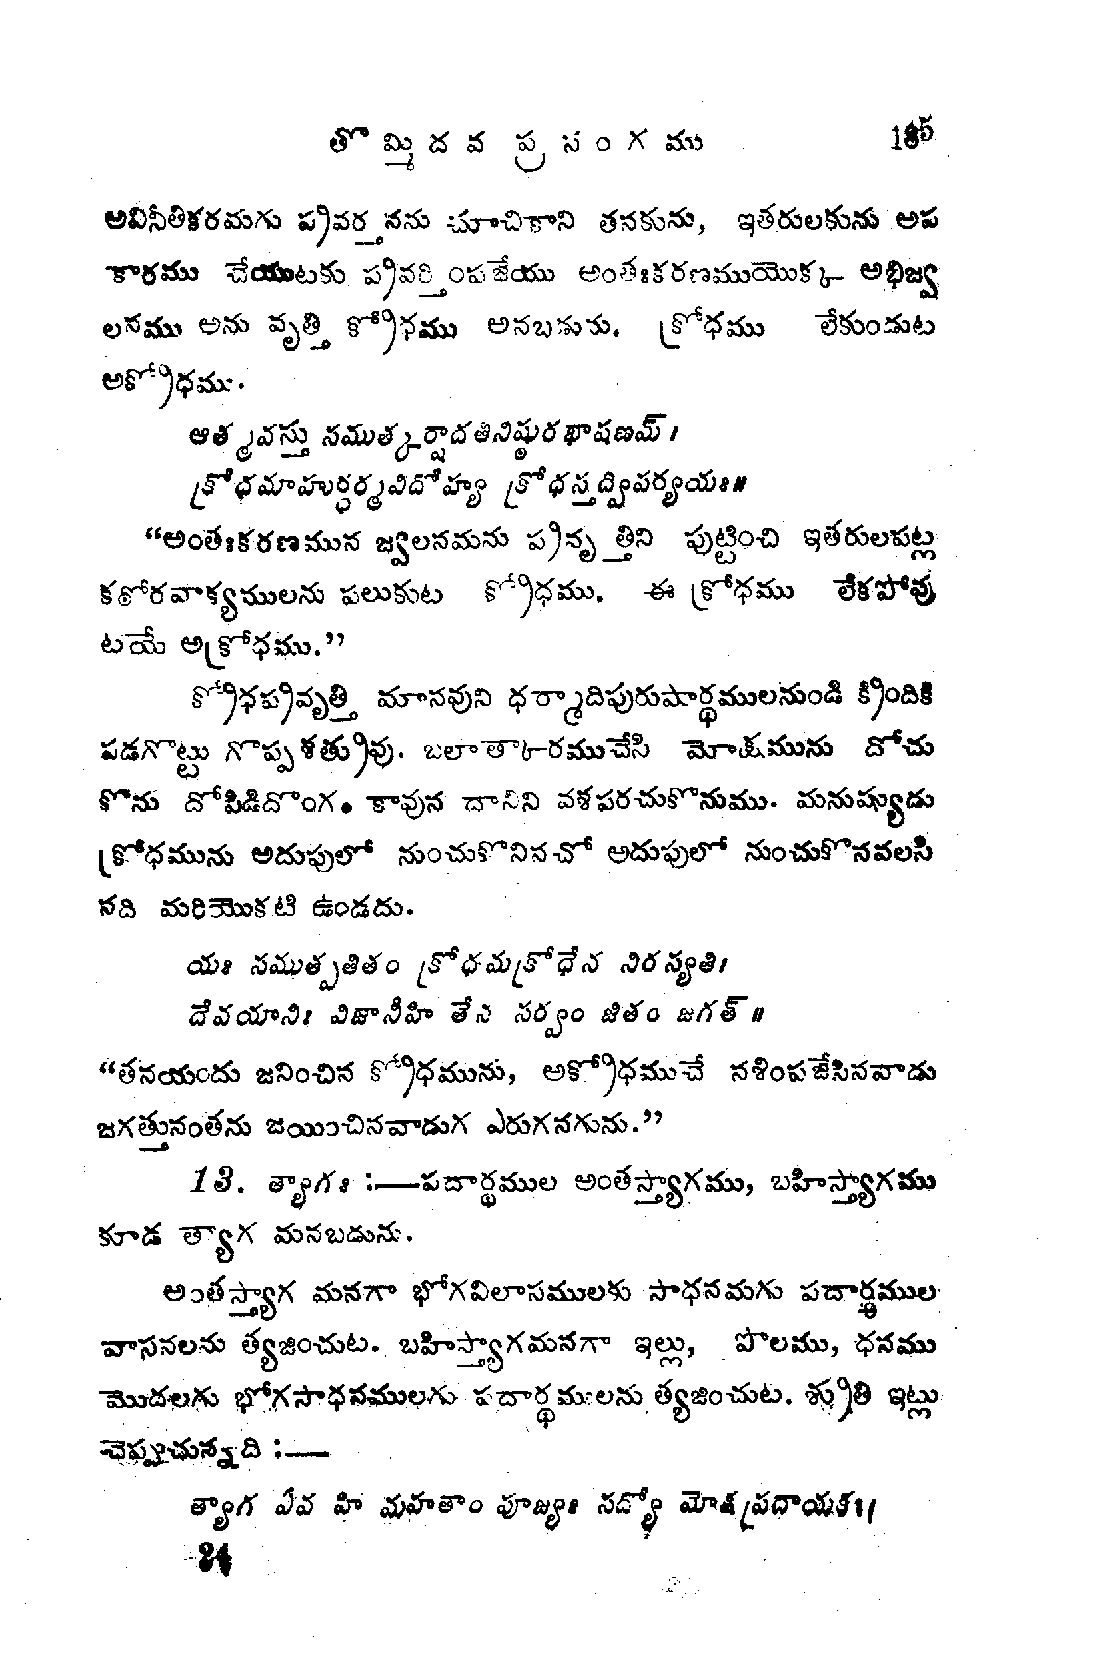 తొమ్మిదవ ప్రసంగము 185
అవినీతికరమగు ప్రవర్తనను చూచికాని తనకును, ఇతరులకును అప
కారము చేయుటకు ప్రవర్తింపజేయు అంతఃకరణముయొక్క అభిజ్వ
లనము అను వృత్తి క్రోధము అనబడును. క్రోధము లేకుండుట
అక్రోధము.
ఆత్మవస్తు సముత్కర్షాదతినిష్ఠురభాషణమ్।
క్రోధమాహుర్ధర్మవిదోహ్య క్రోధస్తద్విపర్యయః॥
“అంతఃకరణమున జ్వలనమను ప్రవృత్తిని పుట్టించి ఇతరులపట్ల
కఠోరవాక్యములను పలుకుట క్రోధము. ఈ క్రోధము లేకపోవు
టయే అక్రోధము.”
క్రోధప్రవృత్తి మానవుని ధర్మాదిపురుషార్థములనుండి క్రిందికి
పడగొట్టు గొప్ప శత్రువు. బలాత్కారముచేసి మోక్షమును దోచు
కొను దోపిడిదొంగ. కావున దానిని వశపరచుకొనుము. మనుష్యుడు
క్రోధమును అదుపులో నుంచుకొనినచో అదుపులో నుంచుకొనవలసి
నది మరియొకటి ఉండదు.
యః సముత్పతితం క్రోధమక్రోధేన నిరస్యతి।
దేవయాని! విజానీహి తేన సర్వం జితం జగత్॥
“తనయందు జనించిన క్రోధమును, అక్రోధముచే నశింపజేసినవాడు
జగత్తునంతను జయించినవాడుగ ఎరుగనగును.”
13. త్యాగః :—పదార్థముల అంతస్త్యాగము, బహిస్త్యాగము
కూడ త్యాగ మనబడును.
అంతస్త్యాగ మనగా భోగవిలాసములకు సాధనమగు పదార్థముల
వాసనలను త్యజించుట. బహిస్త్యాగమనగా ఇల్లు, పొలము, ధనము
మొదలగు భోగసాధనములగు పదార్థములను త్యజించుట. శ్రుతి ఇట్లు
చెప్పుచున్నది :—
త్యాగ ఏవ హి మహతాం పూజ్యః సద్యో మోక్షప్రదాయకః।
24